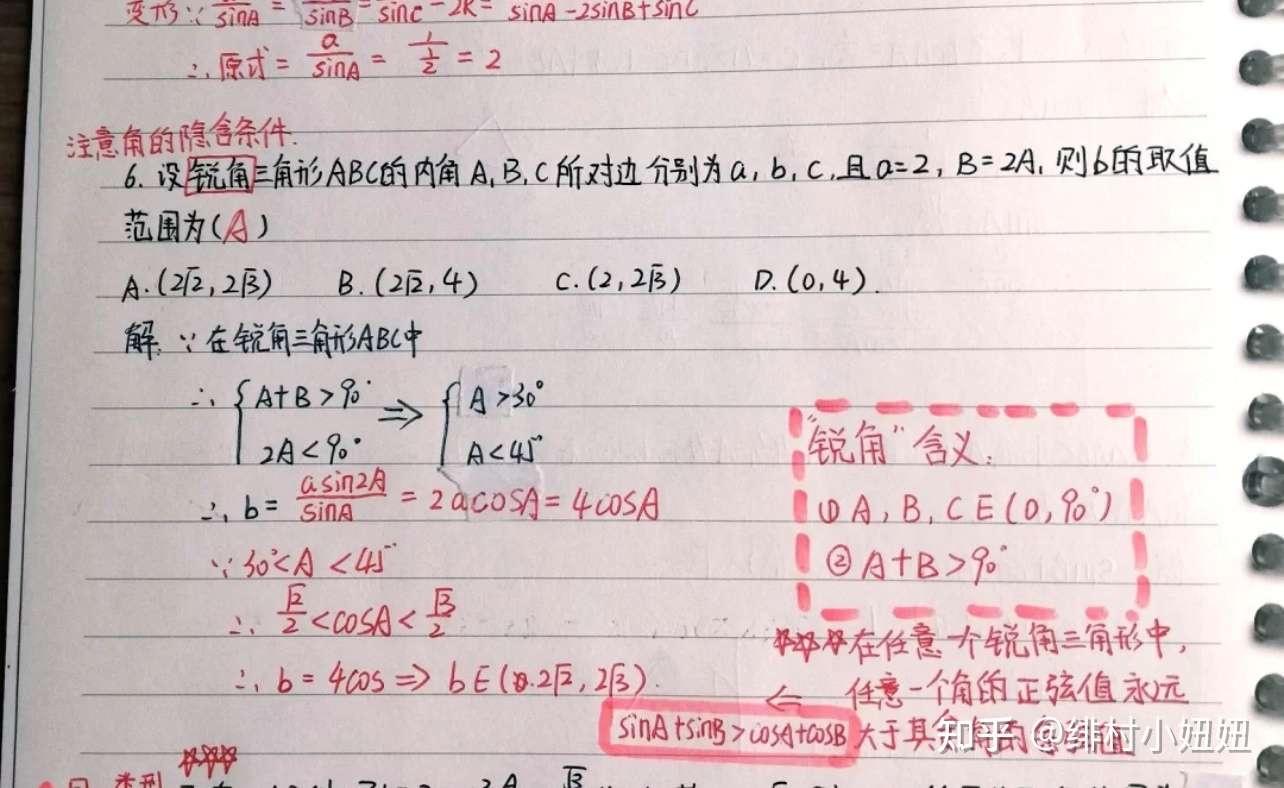 变形∵ sinA = sinB = sinC = 2R = sinA-2sinB+sinC
∴原式 = a/sinA = 1/(1/2) = 2
注意角的隐含条件.
6. 设锐角三角形ABC的内角A,B,C所对边分别为a,b,c,且a=2,B=2A,则b的取值
范围为(A)
A.(2√2,2√3) B.(2√2,4) C.(2,2√3) D.(0,4).
解:∵在锐角三角形ABC中
∴ { A+B>90° ⇒ { A>30°
2A<90° A<45°
∴ b= asin2A/sinA = 2acosA=4cosA
∵30°<A<45°
∴ √2/2<cosA<√3/2
∴ b=4cos⇒b∈(2√2,2√3).
"锐角"含义:
① A,B,C∈(0,90°)
② A+B>90°
☆☆☆在任意一个锐角三角形中,
⇐ 任意一个角的正弦值永远
sinA+sinB>cosA+cosB 大于其
知乎 @绯村小妞妞
☆☆☆
类型